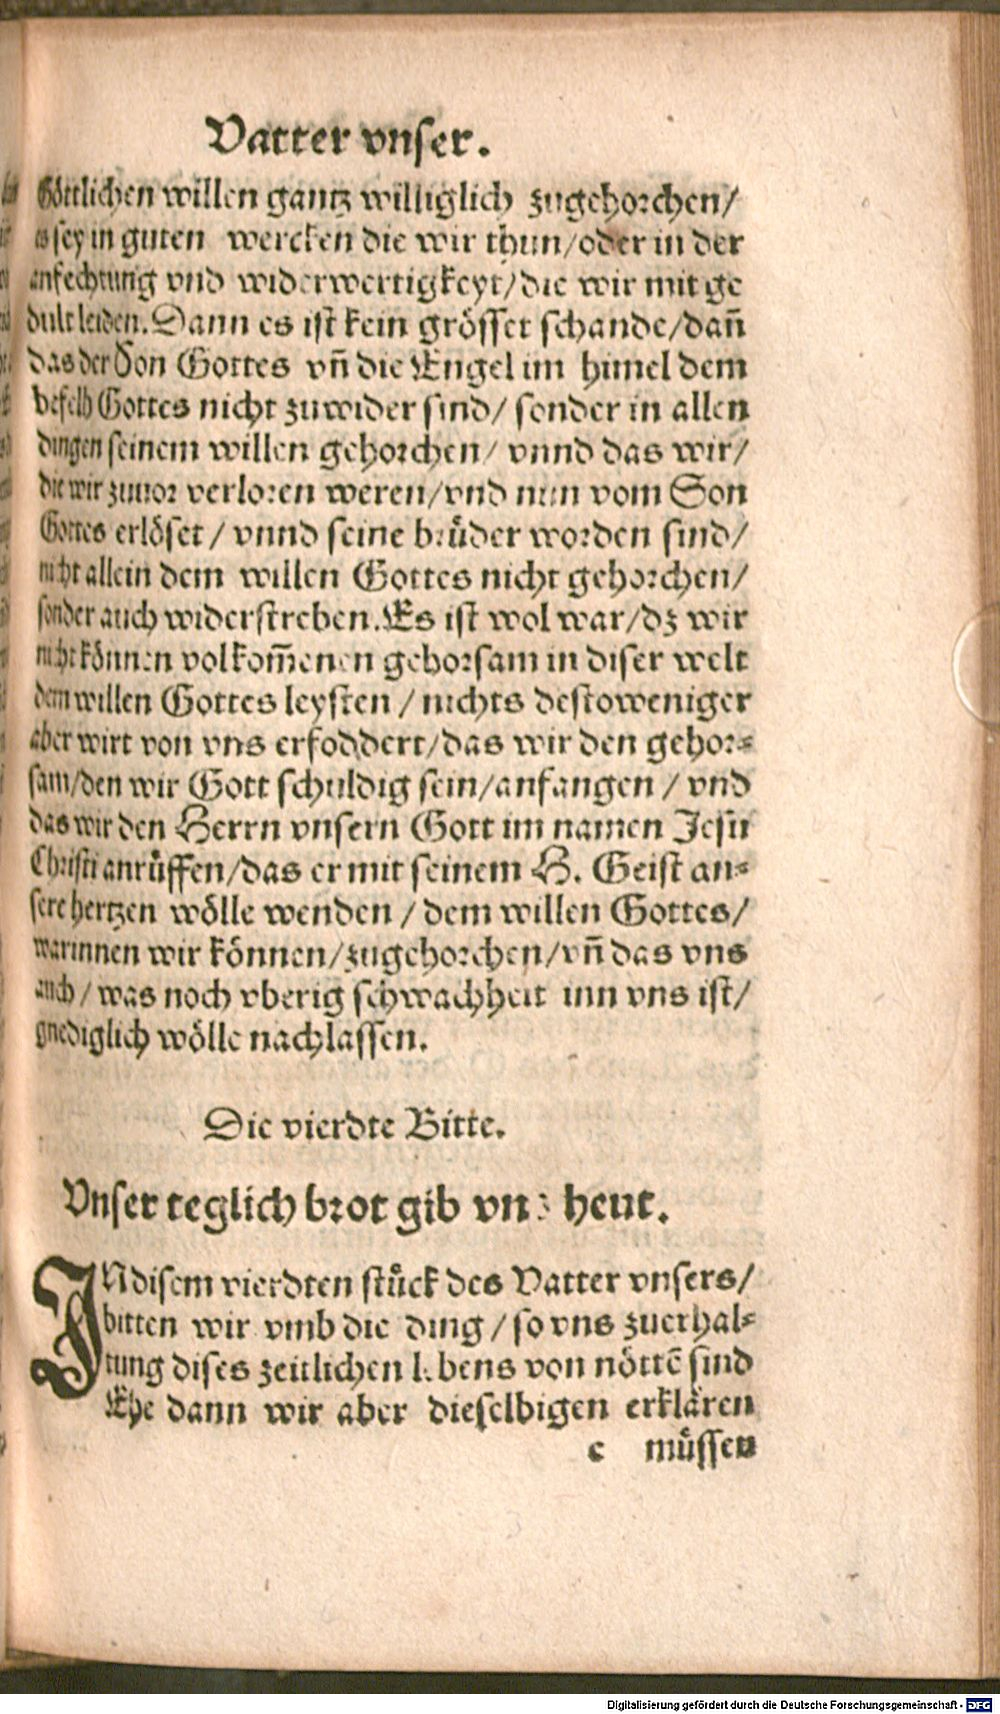 Vatter vnser.
Göttlichen willen gantz williglich zugehorchen/
es sey in guten wercken die wir thun/oder in der
anfechtung vnd widerwertigkeyt/die wir mit ge
dult leiden. Dann es ist kein grösser schande/dañ
das der Son Gottes vñ die Engel im himel dem
befelh Gottes nicht zuwider sind/ sonder in allen
dingen seinem willen gehorchen/ vnnd das wir/
die wir zuuor verloren weren/vnd nun vom Son
Gottes erlöset / vnnd seine brüder worden sind/
nicht allein dem willen Gottes nicht gehorchen/
sonder auch widerstreben. Es ist wol war/dz wir
nicht können volkom̃enen gehorsam in diser welt
dem willen Gottes leysten / nichts destoweniger
aber wirt von vns erfoddert/das wir den gehor-
sam/den wir Gott schuldig sein/anfangen / vnd
das wir den Herrn vnsern Gott im namen Jesu
Christi anrüffen/das er mit seinem H. Geist an-
sere hertzen wölle wenden / dem willen Gottes/
warinnen wir können/zugehorchen/vñ das vns
auch / was noch vberig schwachheit inn vns ist/
gnediglich wölle nachlassen.
Die vierdte Bitte.
Vnser teglich brot gib vns heut.
JN disem vierdten stück des Vatter vnsers/
bitten wir vmb die ding / so vns zuerhal-
tung dises zeitlichen lebens von nöttē sind
Ehe dann wir aber dieselbigen erklären
c müssen
Digitalisierung gefördert durch die Deutsche Forschungsgemeinschaft - DFG